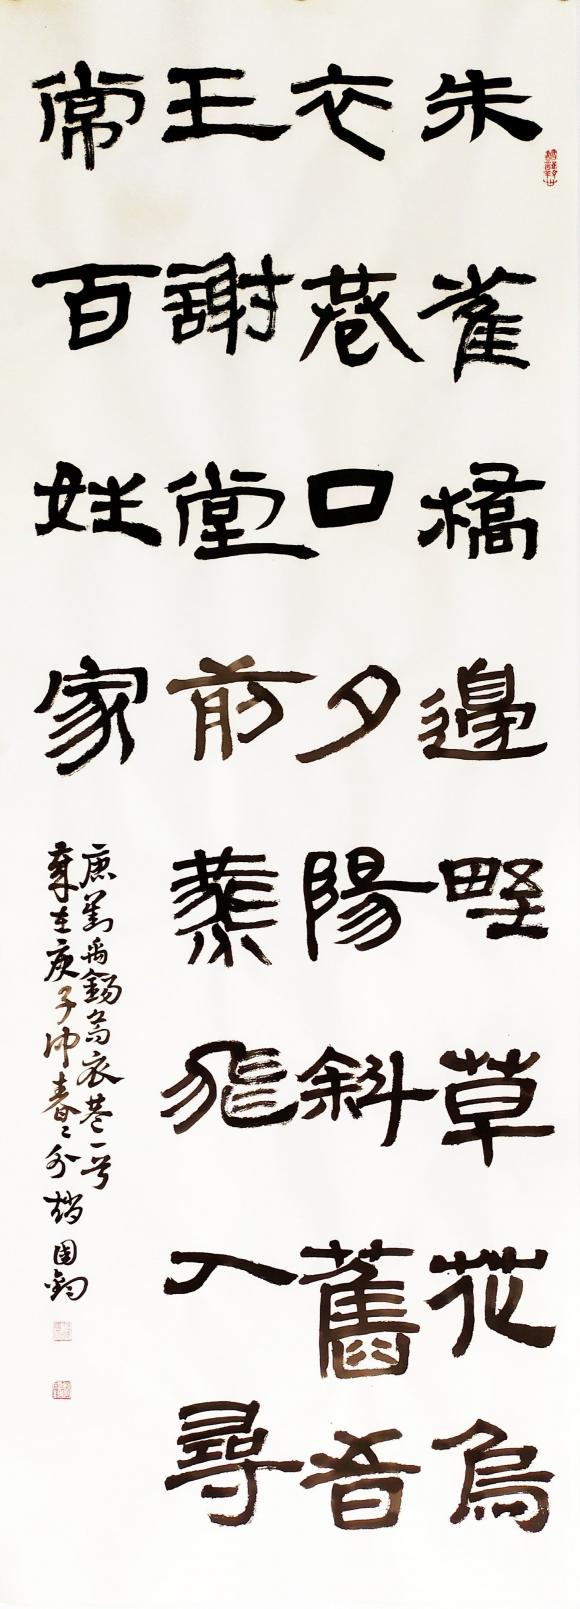 朱雀橋邊野草花烏
衣巷口夕陽斜舊旹
王謝堂前燕飛入尋
常百姓家
唐劉禹錫烏衣巷一首
歲在庚子仲春々分趙国鈞